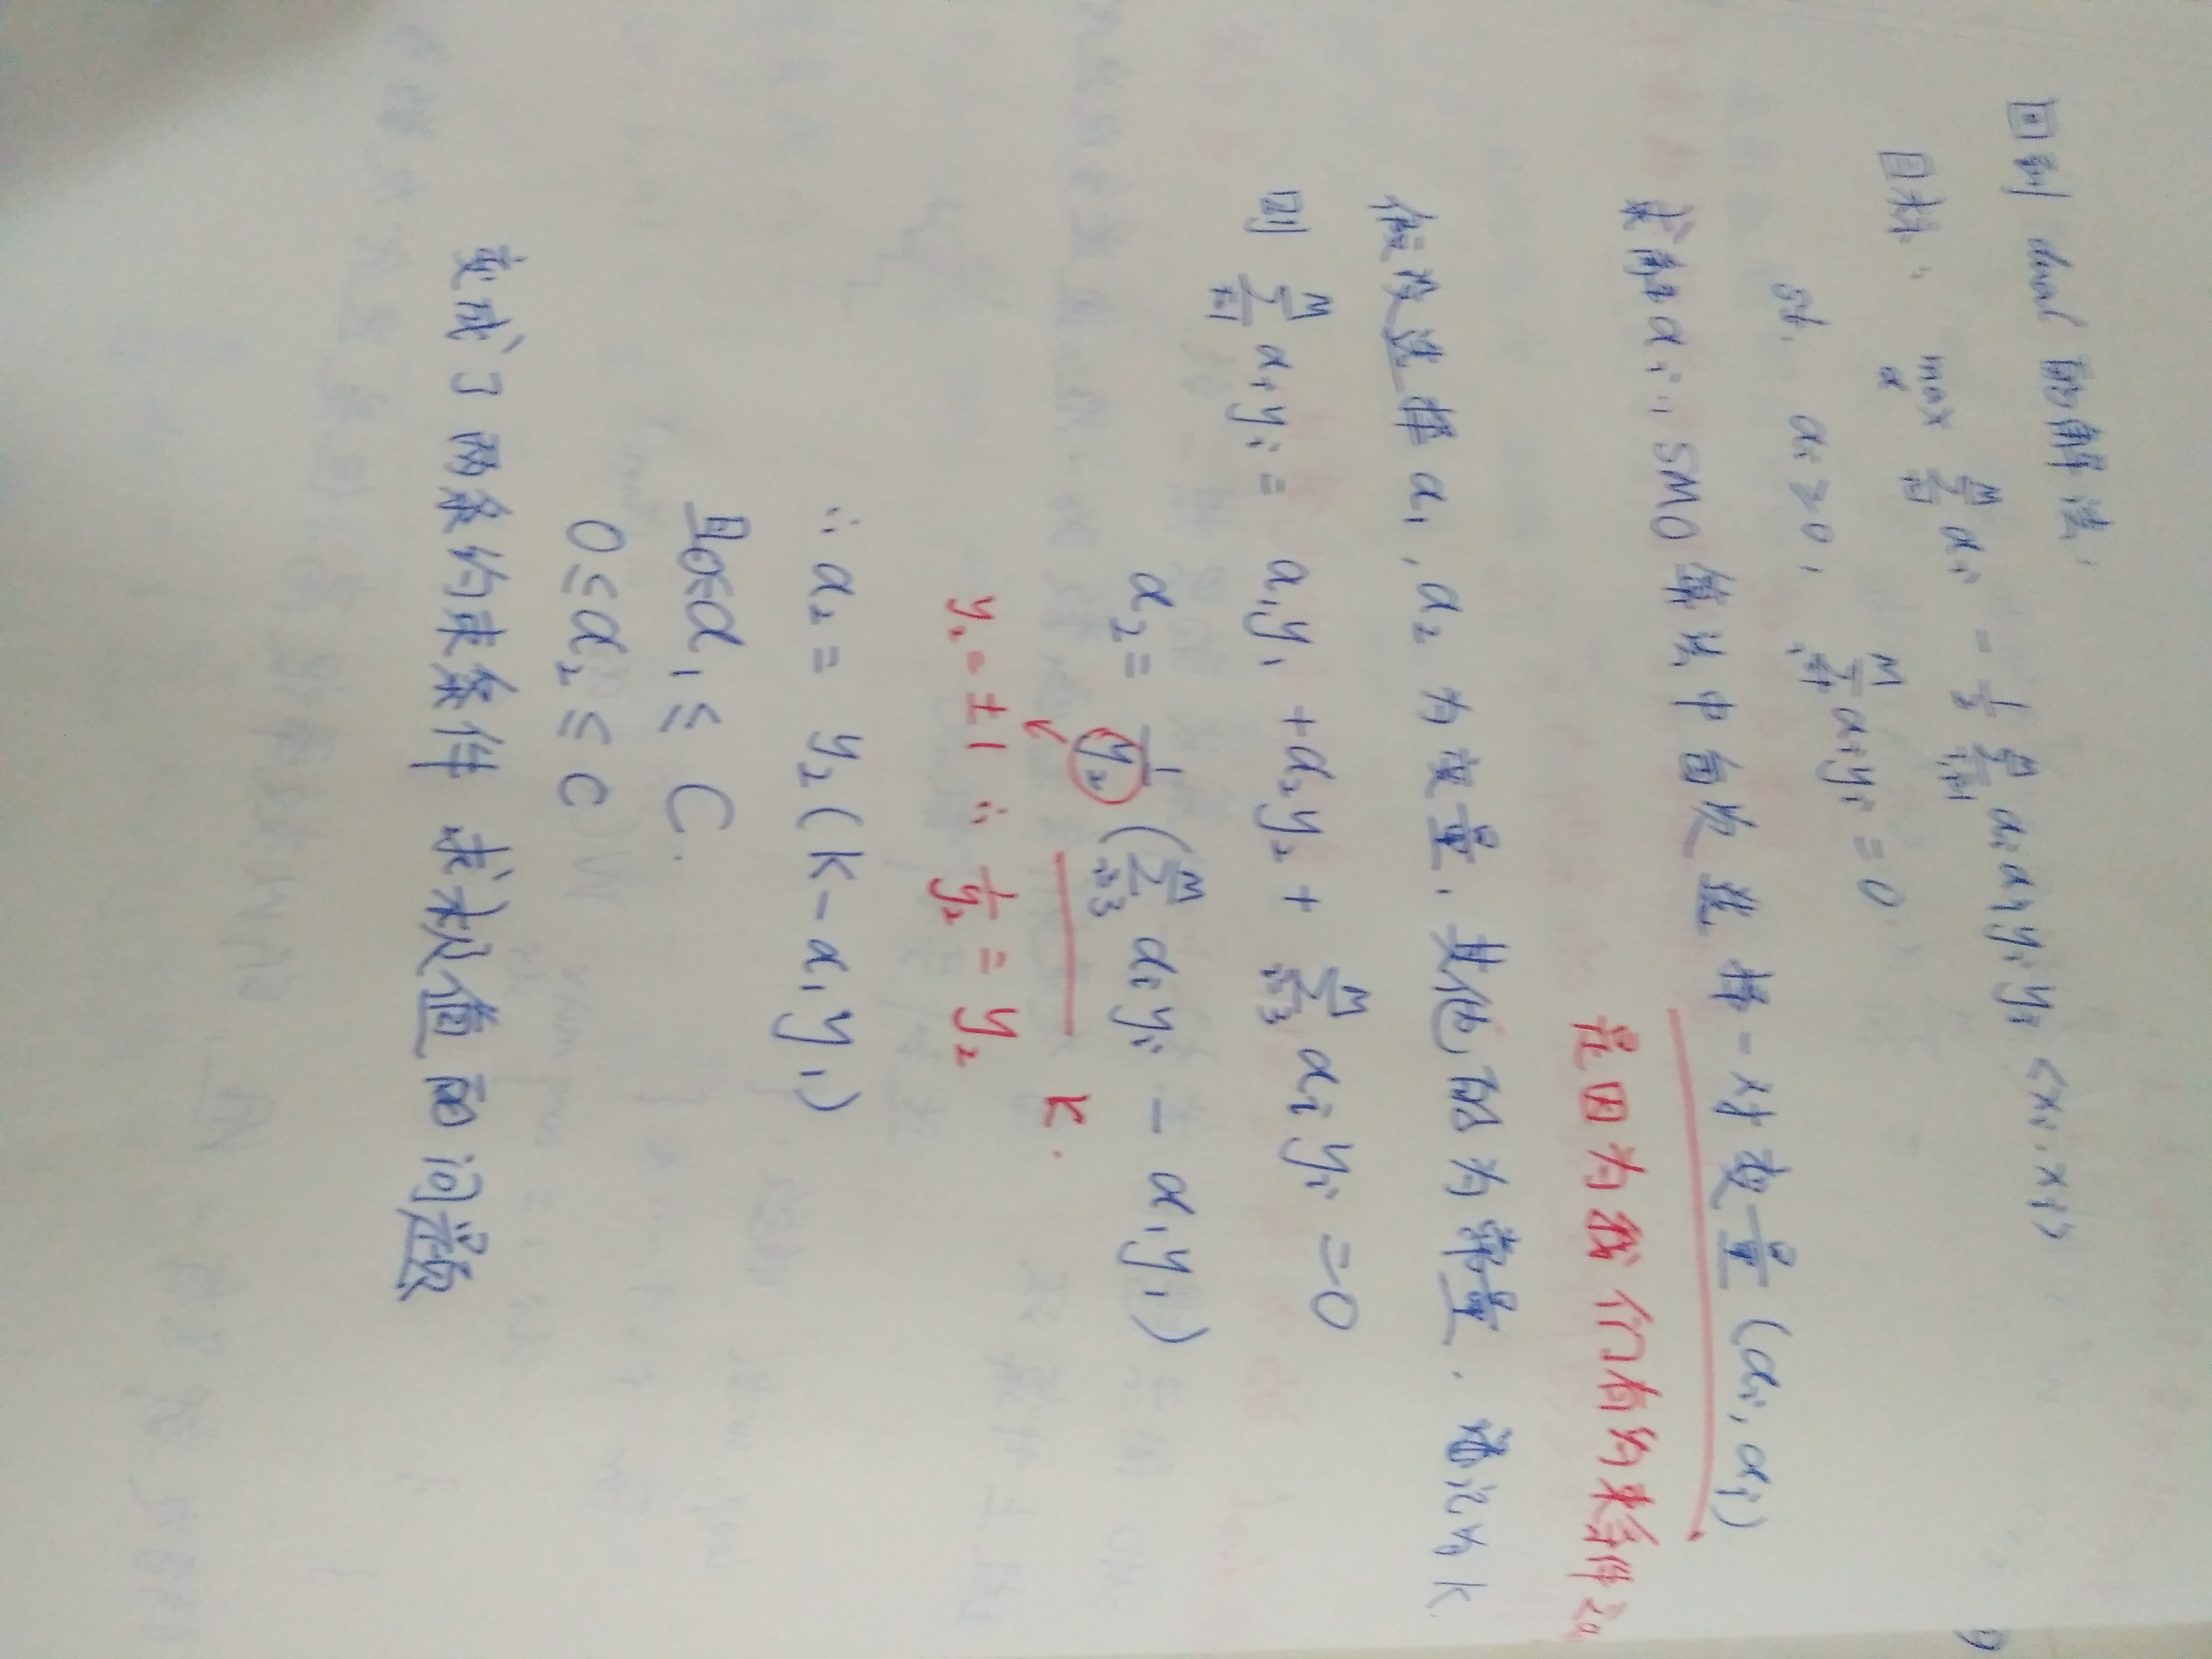 回到 dual 的解法,
目标: max_α Σ_{i=1}^{M} α_i - 1/2 Σ_{i,j=1}^{M} α_i α_j y_i y_j <x_i, x_j>
st. α_i ≥ 0, Σ_{i=1}^{M} α_i y_i = 0,
求解 α_i: SMO 算法中每次选择一对变量 (α_i, α_j)
是因为我们有约束条件
假设选择 α_1, α_2 为变量, 其他的为常量. 记为 K.
则 Σ_{i=1}^{M} α_i y_i = α_1 y_1 + α_2 y_2 + Σ_{i=3}^{M} α_i y_i = 0
α_2 = 1/y_2 (Σ_{i=3}^{M} α_i y_i - α_1 y_1)
K.
y_2 = ±1 ∴ 1/y_2 = y_2
∴ α_2 = y_2 (K - α_1 y_1)
且 0 ≤ α_1 ≤ C.
0 ≤ α_2 ≤ C
变成了两条约束条件 求极值的问题